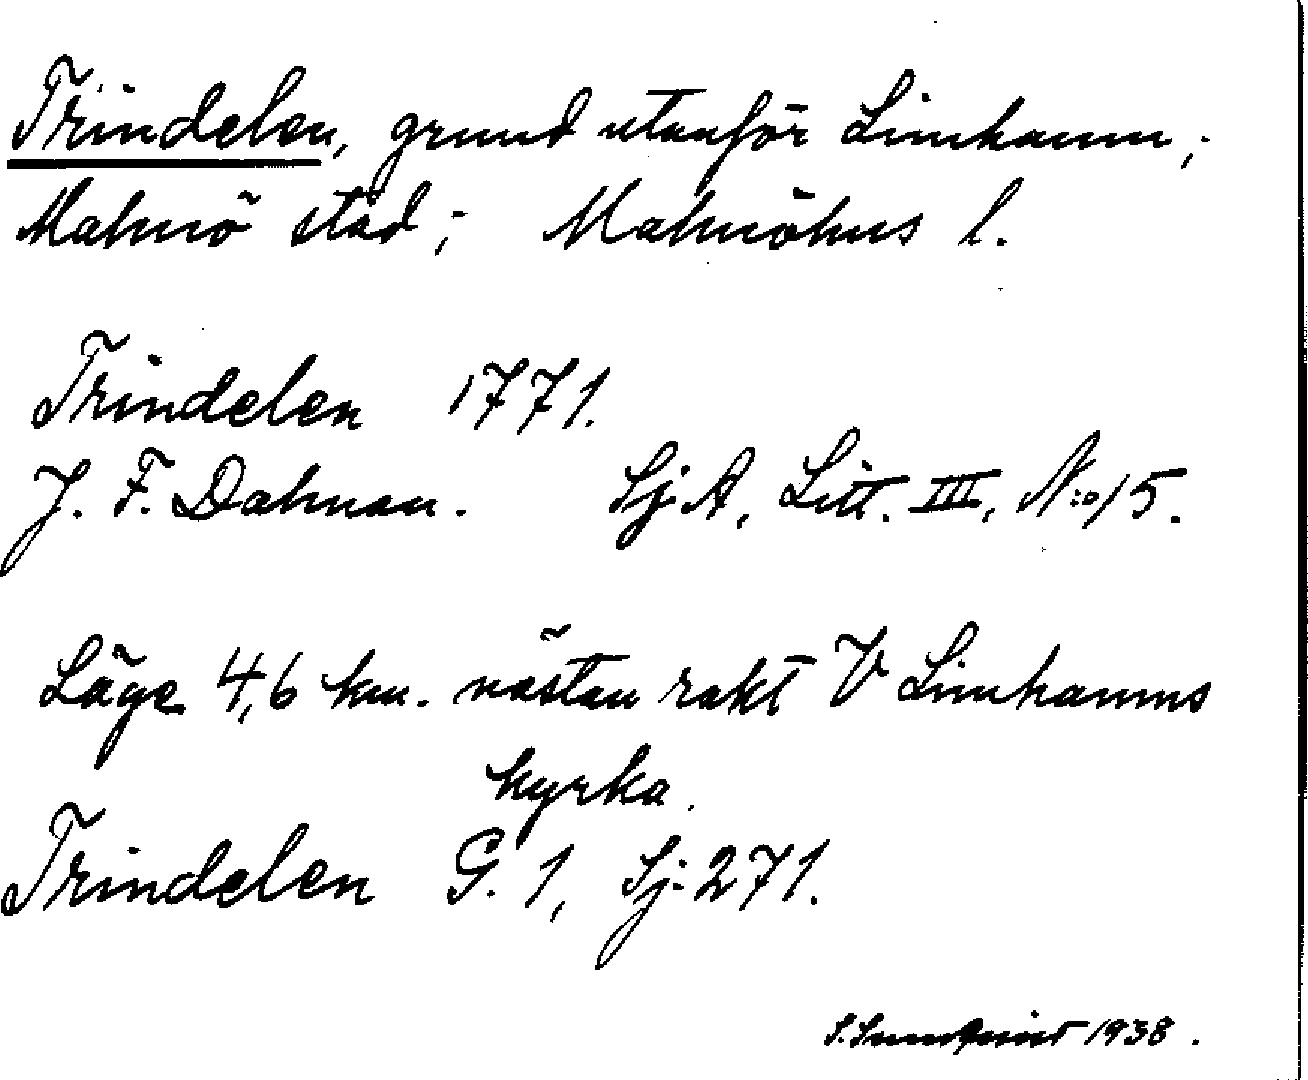 Trindelen, grund utanför Limhamn;
Malmö stad; Malmöhus l.
Trindelen 1771.
J. F. Dalman. Sj. A, Litt. III, N:o 15.
Läge 4,6 km. nästan rakt V Limhamns
kyrka.
Trindelen G. 1, Sj. 271.
S. Sundqvist 1938.